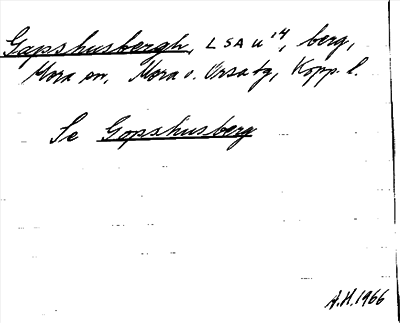 Gapshusbergh, LSA U'14, berg,
Mora sn, Mora o. Orsa tg, Kopp. l.
Se Gopshusberg
A.H. 1966